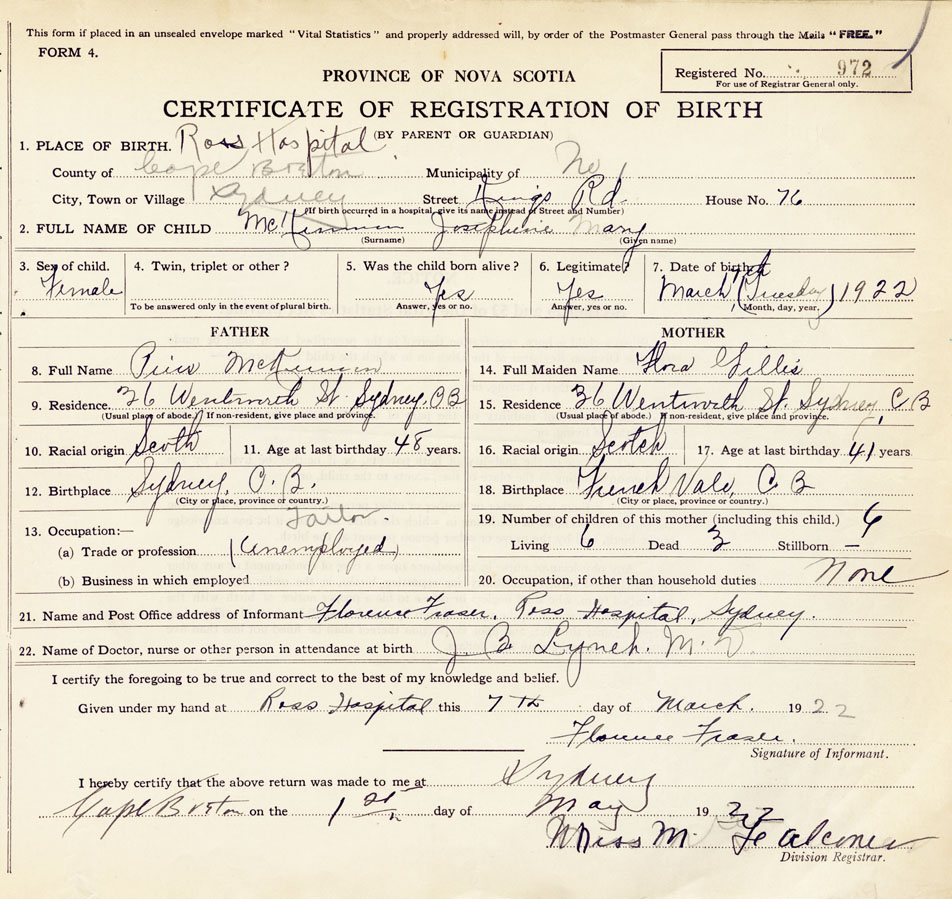 This form if placed in an unsealed envelope marked "Vital Statistics" and properly addressed will, by order of the Postmaster General pass through the Mails "FREE."
FORM 4.
Registered No. 972
For use of Registrar General only.
PROVINCE OF NOVA SCOTIA
CERTIFICATE OF REGISTRATION OF BIRTH
(BY PARENT OR GUARDIAN)
1. PLACE OF BIRTH. Ross Hospital
County of Cape Breton Municipality of No 1
City, Town or Village Sydney Street Kings Rd. House No. 76
(If birth occurred in a hospital, give its name instead of Street and Number)
2. FULL NAME OF CHILD McKinnon Josephine Mary
(Surname) (Given name)
3. Sex of child. 4. Twin, triplet or other? 5. Was the child born alive? 6. Legitimate? 7. Date of birth
Female Yes Yes March 7th (Tuesday) 1922
To be answered only in the event of plural birth. Answer, yes or no. Answer, yes or no. (Month, day, year.)
FATHER MOTHER
8. Full Name Pius McKinnon 14. Full Maiden Name Flora Gillis
9. Residence. 36 Wentworth St. Sydney, CB 15. Residence 36 Wentworth St. Sydney, C B
(Usual place of abode.) If non-resident, give place and province. (Usual place of abode.) If non-resident, give place and province.
10. Racial origin Scoth 11. Age at last birthday 48 years. 16. Racial origin Scotch 17. Age at last birthday 41 years
12. Birthplace Sydney, C. B. 18. Birthplace French Vale, C B
(City or place, province or country.) (City or place, province or country.)
13. Occupation:— Tailor. 19. Number of children of this mother (including this child.)
(a) Trade or profession (Unemployed) Living 6 Dead 3 Stillborn —
(b) Business in which employed 20. Occupation, if other than household duties None
21. Name and Post Office address of Informant Florence Fraser, Ross Hospital, Sydney.
22. Name of Doctor, nurse or other person in attendance at birth J. B. Lynch. M. D.
I certify the foregoing to be true and correct to the best of my knowledge and belief.
Given under my hand at Ross Hospital this 7th day of March. 1922
Florence Fraser.
Signature of Informant.
I hereby certify that the above return was made to me at Sydney
Cape Breton on the 1st day of May 1922
Miss M. Falconer
Division Registrar.